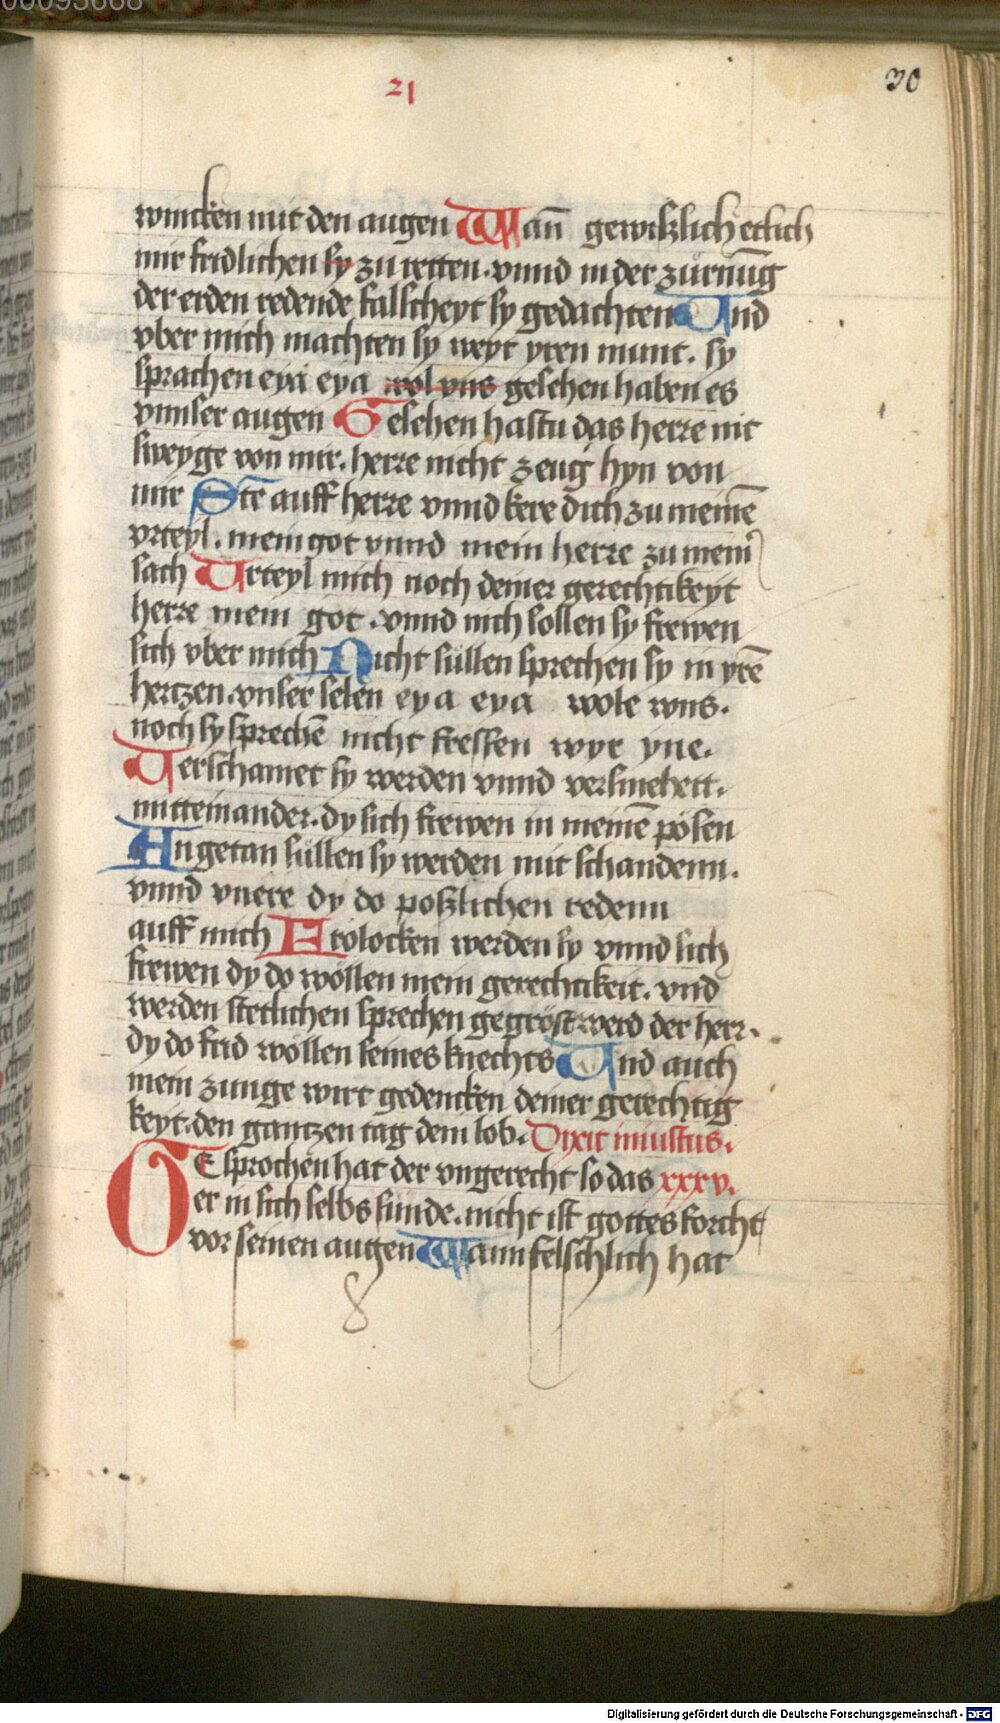 00095668
21
30
wincken mit den augen Wañ gewißlich etlich
mir fridlichen sy zu retten. vnnd in der zürnūg
der erden redende falscheyt sy gedachten Vnd
vber mich machten sy weyt yren munt. sy
sprachen eya eya wol vns gesehen haben es
vnnser augen Gesehen hastu das herre nit
sweyge von mir. herre nicht zeug hyn von
mir Stē auff herre vnnd kere dich zu meinē
vrteyl. mein got vnnd mein herre zu mein
sach Vrteyl mich noch deiner gerechtikeyt
herre mein got. vnnd nich sollen sy frewen
sich vber mich Nicht süllen sprechen sy in yrē
hertzen. vnser selen eya eya wole wns.
noch sy sprechē nicht fressen wyr yne.
Verschamet sy werden vnnd versmehett.
mitteinander. dy sich frewen in meinē pösen
Angetan süllen sy werden mit schandenn.
vnnd vnere dy do poßlichen redenn
auff mich Frolocken werden sy vnnd sich
frewen dy do wöllen mein gerechtikeit. vnd
werden stetlichen sprechen gegröst werd der herr.
dy do frid wöllen seines knechts Vnd auch
mein zunge wirt gedencken deiner gerechtig
keyt. den gantzen tag dein lob. Dixit iniustus.
GEsprochen hat der vngerecht so das xxxv.
er in sich selbs sunde. nicht ist gottes forcht
vor seinen augen Wann felschlich hat
8
Digitalisierung gefördert durch die Deutsche Forschungsgemeinschaft - DFG